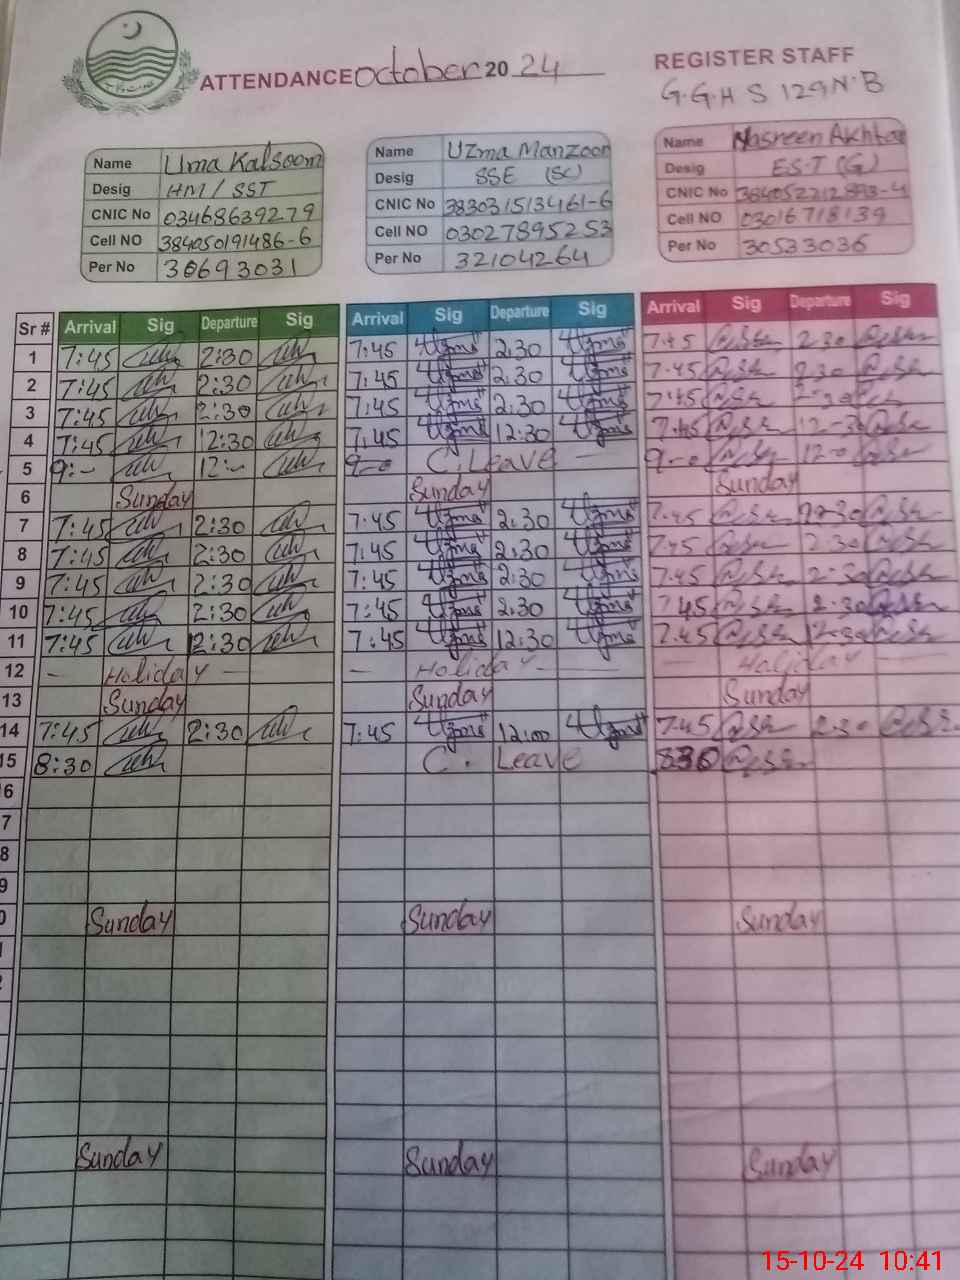 ATTENDANCE October 2024 REGISTER STAFF
G.G.H S 129 N.B
Name Uma Kalsoom
Desig HM / SST
CNIC No 03468639279
Cell NO 384050191486-6
Per No 30693031
Name Uzma Manzoor
Desig SSE (SC)
CNIC No 383031513461-6
Cell NO 03027895253
Per No 32104264
Name Nasreen Akhtar
Desig E.S.T (G)
CNIC No 384052212893-4
Cell No 03016718139
Per No 30533036
Sr # Arrival Sig Departure Sig Arrival Sig Departure Sig Arrival Sig Departure Sig
1 7:45 2:30 7:45 Uzma 2:30 Uzma 7.45 2.30
2 7:45 2:30 7:45 Uzma 2:30 Uzma 7.45 2.30
3 7:45 2:30 7:45 Uzma 2:30 Uzma 7.45
4 7:45 12:30 7:45 Uzma 12:30 Uzma 7.45 12-30
5 9:- 12:- 9-0 C.Leave - 9-0 12-0
6 Sunday Sunday Sunday
7 7:45 2:30 7:45 Uzma 2:30 Uzma 7.45
8 7:45 2:30 7:45 Uzma 2:30 Uzma 7.45 2.30
9 7:45 2:30 7:45 Uzma 2:30 Uzma 7.45 2.30
10 7:45 2:30 7:45 Uzma 2:30 Uzma 7.45 2.30
11 7:45 12:30 7:45 Uzma 12:30 Uzma 7.45 12.30
12 - Holiday - - Holiday - - Holiday -
13 Sunday Sunday Sunday
14 7:45 2:30 7:45 Uzma 12:00 Uzma 7.45 2.30
15 8:30 C. Leave 830
6
7
8
9
0 Sunday Sunday Sunday
1
2
Sunday Sunday Sunday
15-10-24 10:41